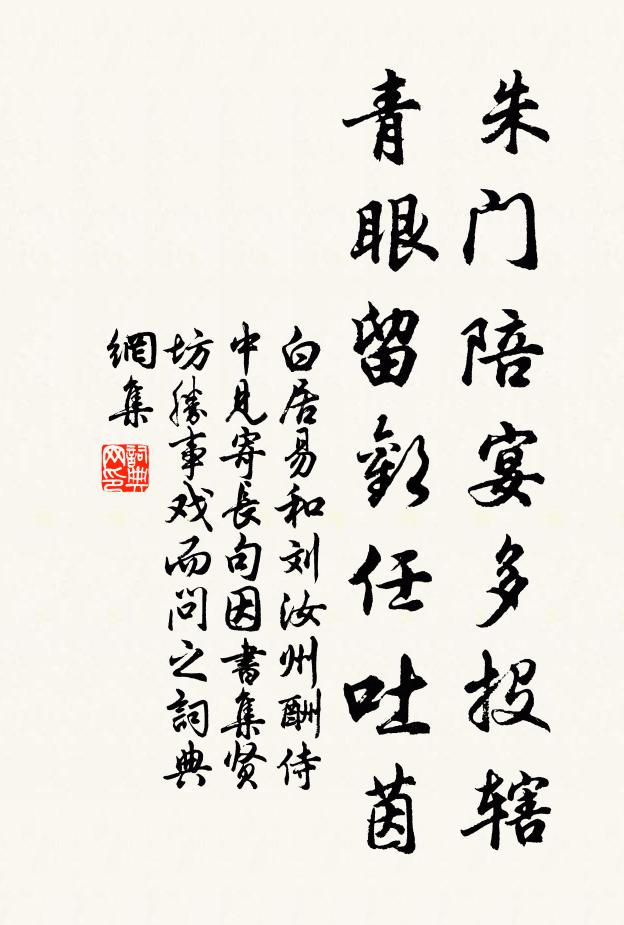 朱门陪宴多投辖
青眼留歡任吐茵
白居易和刘汝州酬侍
中见寄長句因書集贤
坊勝事戏而问之詞典
網集
詞典网印